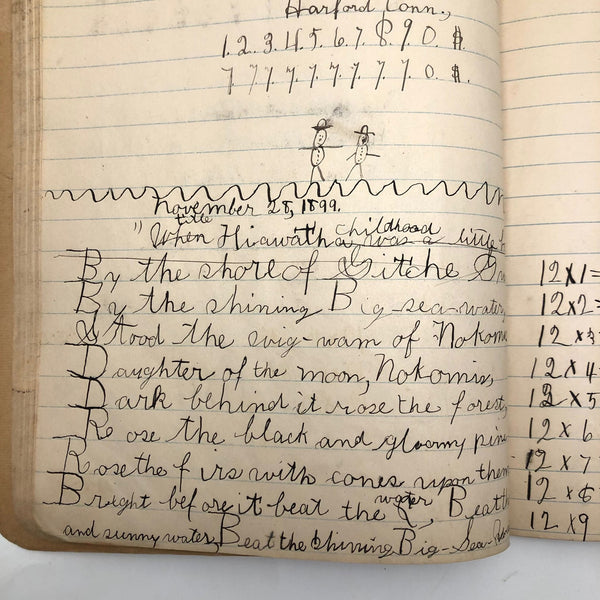 Harford Conn.,
1. 2. 3. 4. 5. 6. 7. 8. 9. 0. $.
7 7 7 7. 7. 7. 7. 7. 7. 0. $.
November 28, 1899.
title childhood
"When Hiawatha was a little
By the shore of Gitche
By the shining Big-sea-water,
Stood the wig-wam of Nokom
Daughter of the moon, Nokomis,
Dark behind it rose the forest,
Rose the black and gloomy pine
Rose the firs with cones upon them
water
Bright before it beat the, Beat the
and sunny water, Beat the shining Big-Sea-
12x1=
12x2=
12x3
12x4
12x5
12x6
12x7
12x8
12x9